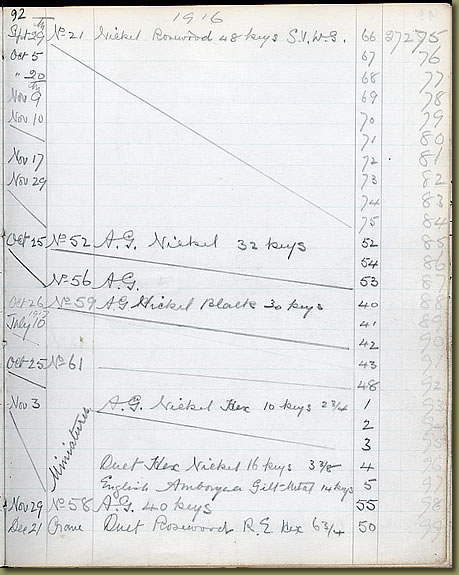 92
1916
Sept 29 No 21 Nickel Rosewood 48 keys S.V.W.S. 66 37275
Oct 5 67 76
" 20 68 77
Nov 9 69 78
Nov 10 70 79
71 80
Nov 17 72 81
Nov 29 73 82
74 83
75 84
Oct 25 No 52 A.G. Nickel 32 keys 52 85
54 86
No 56 A.G. 53 87
Oct 26 No 59 AG Nickel Black 30 keys 40 88
July 41 89
42 90
Oct 25 No 61 43
48 92
Nov 3 Miniatures A.G. Nickel Hex 10 keys 2 3/4 1
2
3
Duet Hex Nickel 16 keys 3 3/8 4
English Amboyna Gilt Metal 14 keys 5
Nov 29 No 58 A.G. 40 keys 55 98
Dec 21 Crane Duet Rosewood R.E. Hex 6 3/4 50 99